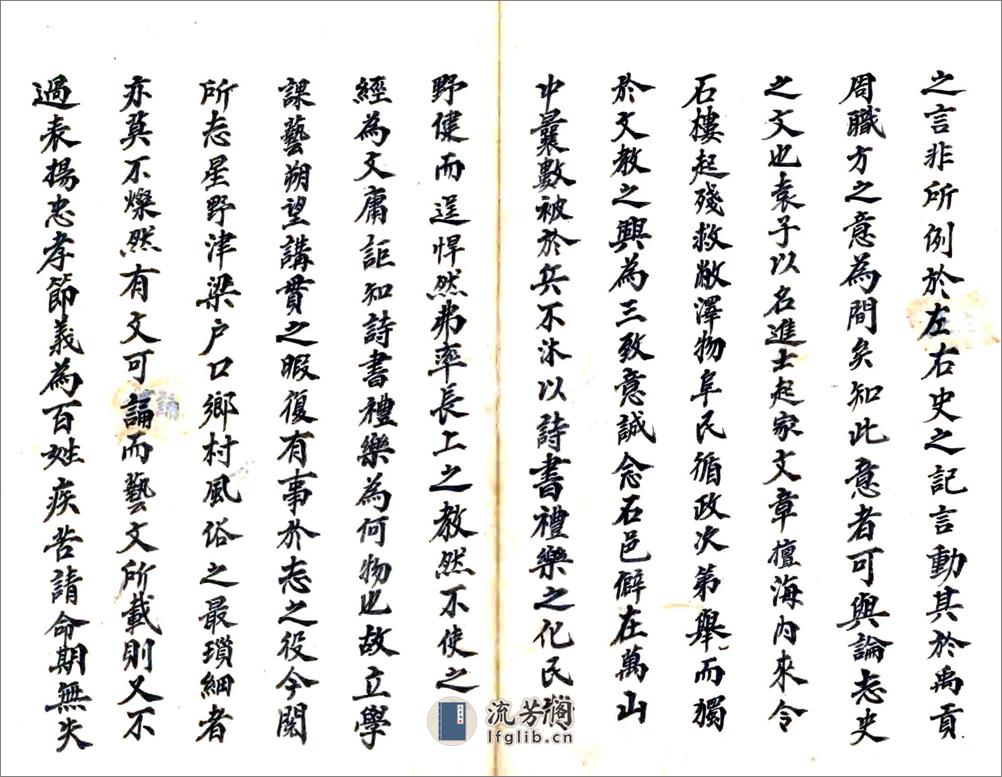 之言非所例於左右史之記言動其於禹貢
周職方之意為間矣知此意者可與論志史
之文也袁子以名進士起家文章擅海內來令
石樓起殘救敝澤物阜民循政次第舉而獨
於文教之興為三致意誠念石邑僻在萬山
中曩數被於兵不沐以詩書禮樂之化民
野健而逞悍然弗率長上之教然不使之
經為文庸詎知詩書禮樂為何物也故立學
課藝朔望講貫之暇復有事於志之役今閱
所志星野津梁户口鄉村風俗之最瑣細者
亦莫不燦然有文可誦而藝文所載則又不
過表揚忠孝節義為百姓疾苦請命期無失
流芳阁
lfglib.cn